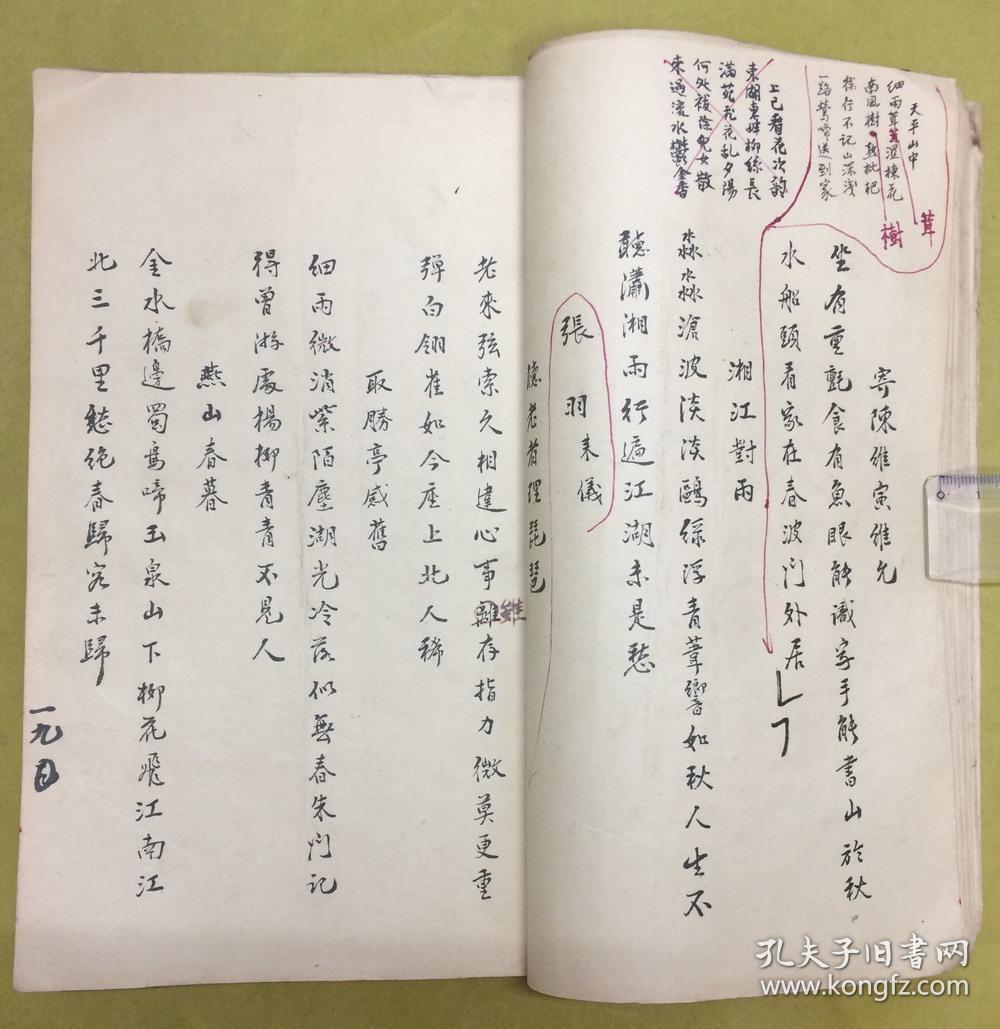 天平山中
細雨茸茸濕楝花
南風樹樹熟枇杷
徐行不記山深淺
一路鶯啼送到家
茸
樹
上巳看花次韵
東湖東畔柳絲長
滿苑飛花亂夕陽
何处祓除兒女散
來過流水鬱金香
寄陳維寅維允
坐有重氈食有魚眼能識字手能書山於秋
水船頭看家在春波門外居
湘江對雨
淼淼滄波淡淡鷗綠浮青葦響如秋人生不
聽瀟湘雨行遍江湖未是愁
張羽来儀
聽老者理琵琶
老來弦索久相違心事雖存指力微莫更重
雖
彈白翎雀如今座上北人稀
取勝亭感舊
細雨微消紫陌塵湖光冷落似無春朱門記
得曾游處楊柳青青不見人
燕山春暮
金水橋邊蜀鳥啼玉泉山下柳花飛江南江
北三千里愁絕春歸客未歸
一九日
孔夫子旧書网
www.kongfz.com